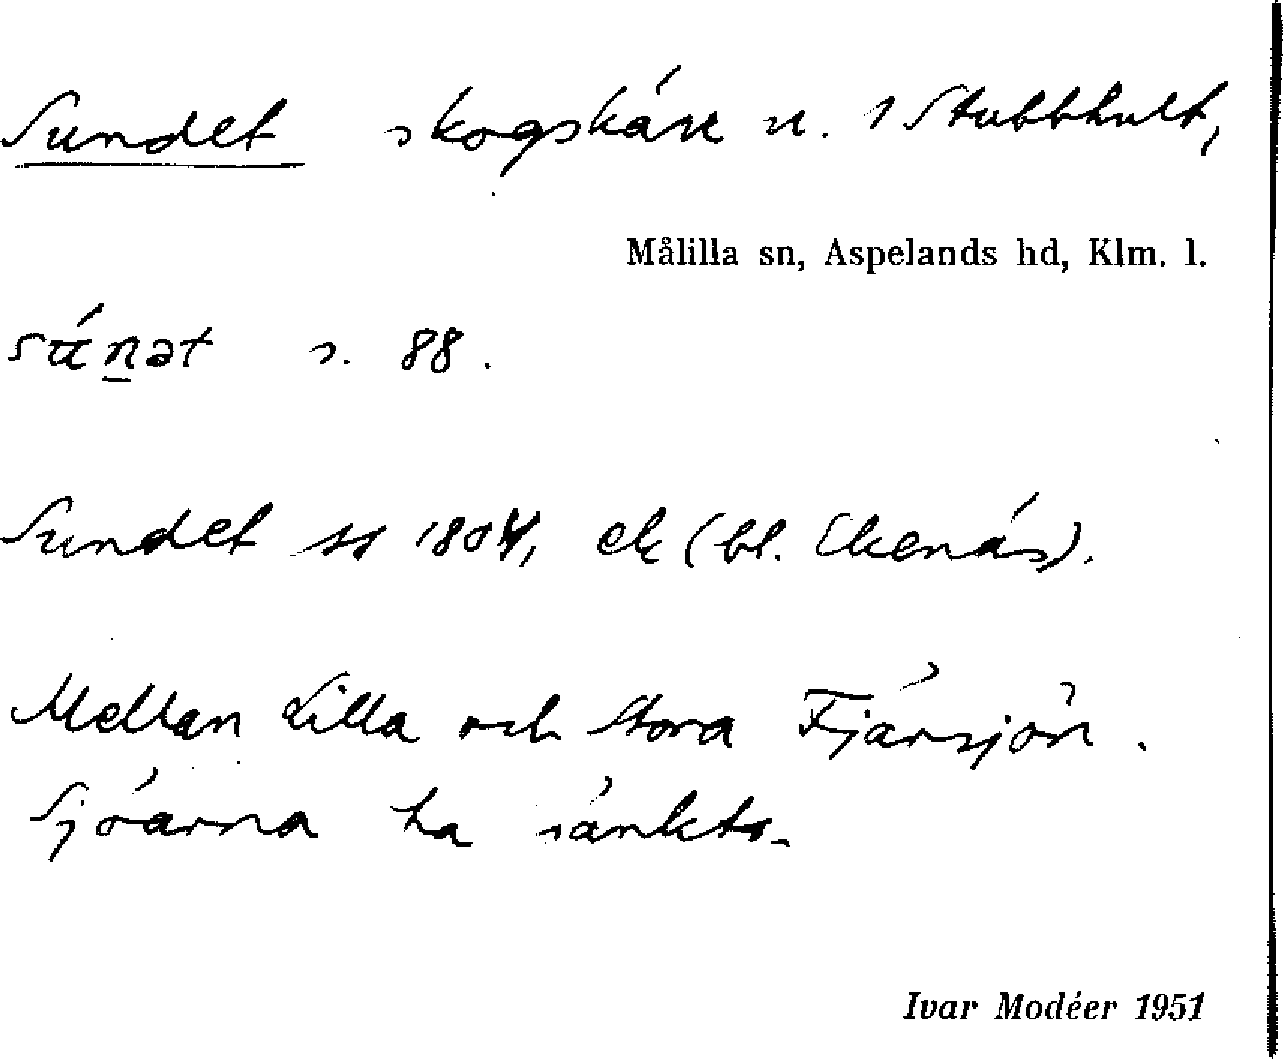 Sundet skogskärr n. 1 Stubbhult,
Målilla sn, Aspelands hd, Klm. l.
s. 88.
Sundet ss 1804, ek (bl. Ekenäs).
Mellan Lilla och Stora Fjärsjön.
Sjöarna ha sänkts.
Ivar Modéer 1951